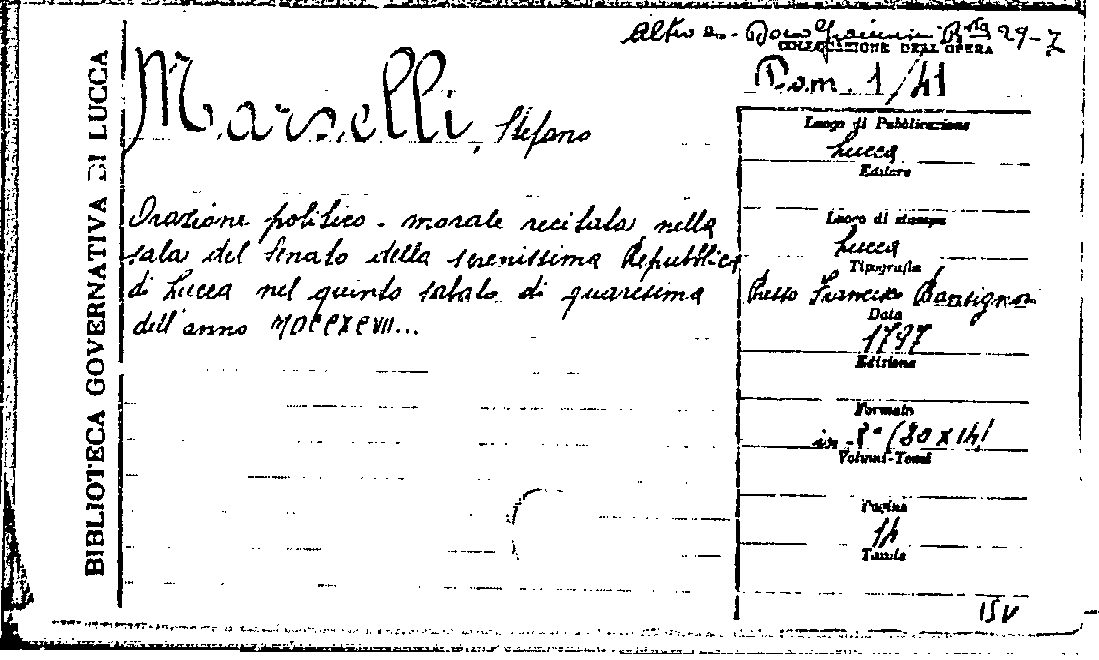 BIBLIOTECA GOVERNATIVA DI LUCCA
Altro es.
29-7
COLLOCAZIONE DELL'OPERA
Marselli, Stefano
Orazione politico-morale recitata nella
sala del Senato della serenissima Repubblica
di Lucca nel quinto sabato di quaresima
dell'anno MDCCXCVII...
1/41
Luogo di Pubblicazione
Lucca
Editore
Luogo di stampa
Lucca
Tipografia
Presso Francesco Bonsignori
Data
1797
Edizione
Formato
in-8°
Volumi-Tomi
Pagine
14
Tavole